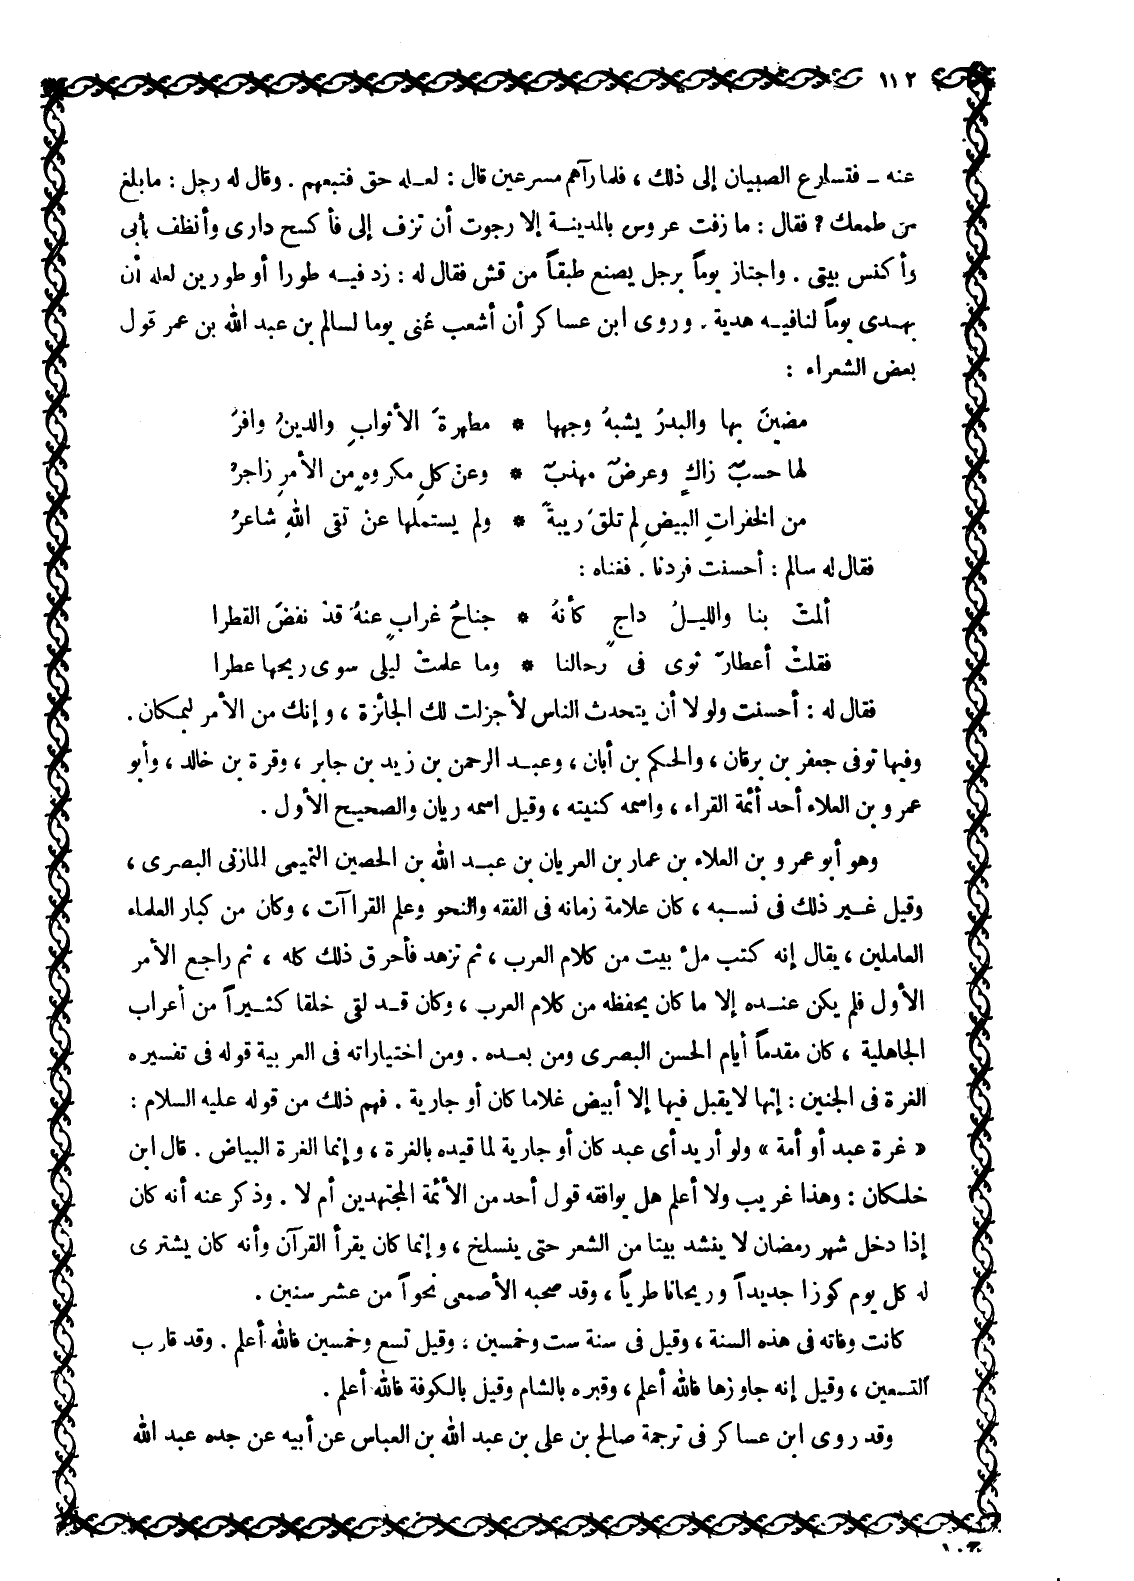 ١١٢
عنه ـ فتسارع الصبيان إلى ذلك ، فلما رآهم مسرعين قال : لعله حق فتبعهم . وقال له رجل : ما بلغ
من طمعك ? فقال : ما زفت عروس بالمدينة إلا رجوت أن تزف إلى فأكسح دارى وأنظف بابى
وأكنس بيتى . واجتاز يوماً برجل يصنع طبقاً من قش فقال له : زد فيه طورا أو طورين لعله أن
يهدى يوماً لنا فيه هدية . وروى ابن عساكر أن أشعب غنى يوما لسالم بن عبد الله بن عمر قول
بعض الشعراء :
مضينَ بها والبدرُ يشبهُ وجهها * مطهرةَ الأثوابِ والدينُ وافرُ
لها حسبٌ زاكٍ وعرضٌ مهذبٌ * وعنْ كلِ مكروهٍ من الأمرِ زاجرُ
من الخفراتِ البيضِ لم تلقَ ريبةً * ولم يستملها عنْ تقى اللهِ شاعرُ
فقال له سالم : أحسنت فزدنا . فغناه :
ألمتْ بنا والليلُ داجٍ كأنهُ * جناحُ غرابٍ عنهُ قدْ نفضَ القطرا
فقلتُ أعطارٌ ثوى فى رحالنا * وما علمتْ ليلى سوى ريحها عطرا
فقال له : أحسنت ولولا أن يتحدث الناس لأجزلت لك الجائزة ، وإنك من الأمر لبمكان .
وفيها توفى جعفر بن برقان ، والحكم بن أبان ، وعبد الرحمن بن زيد بن جابر ، وقرة بن خالد ، وأبو
عمرو بن العلاء أحد أئمة القراء ، واسمه كنيته ، وقيل اسمه ريان والصحيح الأول .
وهو أبو عمرو بن العلاء بن عمار بن العريان بن عبد الله بن الحصين التميمى المازنى البصرى ،
وقيل غير ذلك فى نسبه ، كان علامة زمانه فى الفقه والنحو وعلم القراآت ، وكان من كبار العلماء
العاملين ، يقال إنه كتب ملْ بيت من كلام العرب ، ثم تزهد فأحرق ذلك كله ، ثم راجع الأمر
الأول فلم يكن عنده إلا ما كان يحفظه من كلام العرب ، وكان قد لقى خلقا كثيراً من أعراب
الجاهلية ، كان مقدماً أيام الحسن البصرى ومن بعده . ومن اختياراته فى العربية قوله فى تفسيره
الغرة فى الجنين : إنها لا يقبل فيها إلا أبيض غلاما كان أو جارية . فهم ذلك من قوله عليه السلام :
« غرة عبد أو أمة » ولو أريد أى عبد كان أو جارية لما قيده بالغرة ، وإنما الغرة البياض . قال ابن
خلكان : وهذا غريب ولا أعلم هل يوافقه قول أحد من الأئمة المجتهدين أم لا . وذكر عنه أنه كان
إذا دخل شهر رمضان لا ينشد بيتا من الشعر حتى ينسلخ ، وإنما كان يقرأ القرآن وأنه كان يشترى
له كل يوم كوزا جديداً وريحانا طرياً ، وقد صحبه الأصمعى نحواً من عشر سنين .
كانت وفاته فى هذه السنة ، وقيل فى سنة ست وخمسين ، وقيل تسع وخمسين فالله أعلم . وقد قارب
التسعين ، وقيل إنه جاوزها فالله أعلم ، وقبره بالشام وقيل بالكوفة فالله أعلم .
وقد روى ابن عساكر فى ترجمة صالح بن على بن عبد الله بن العباس عن أبيه عن جده عبد الله